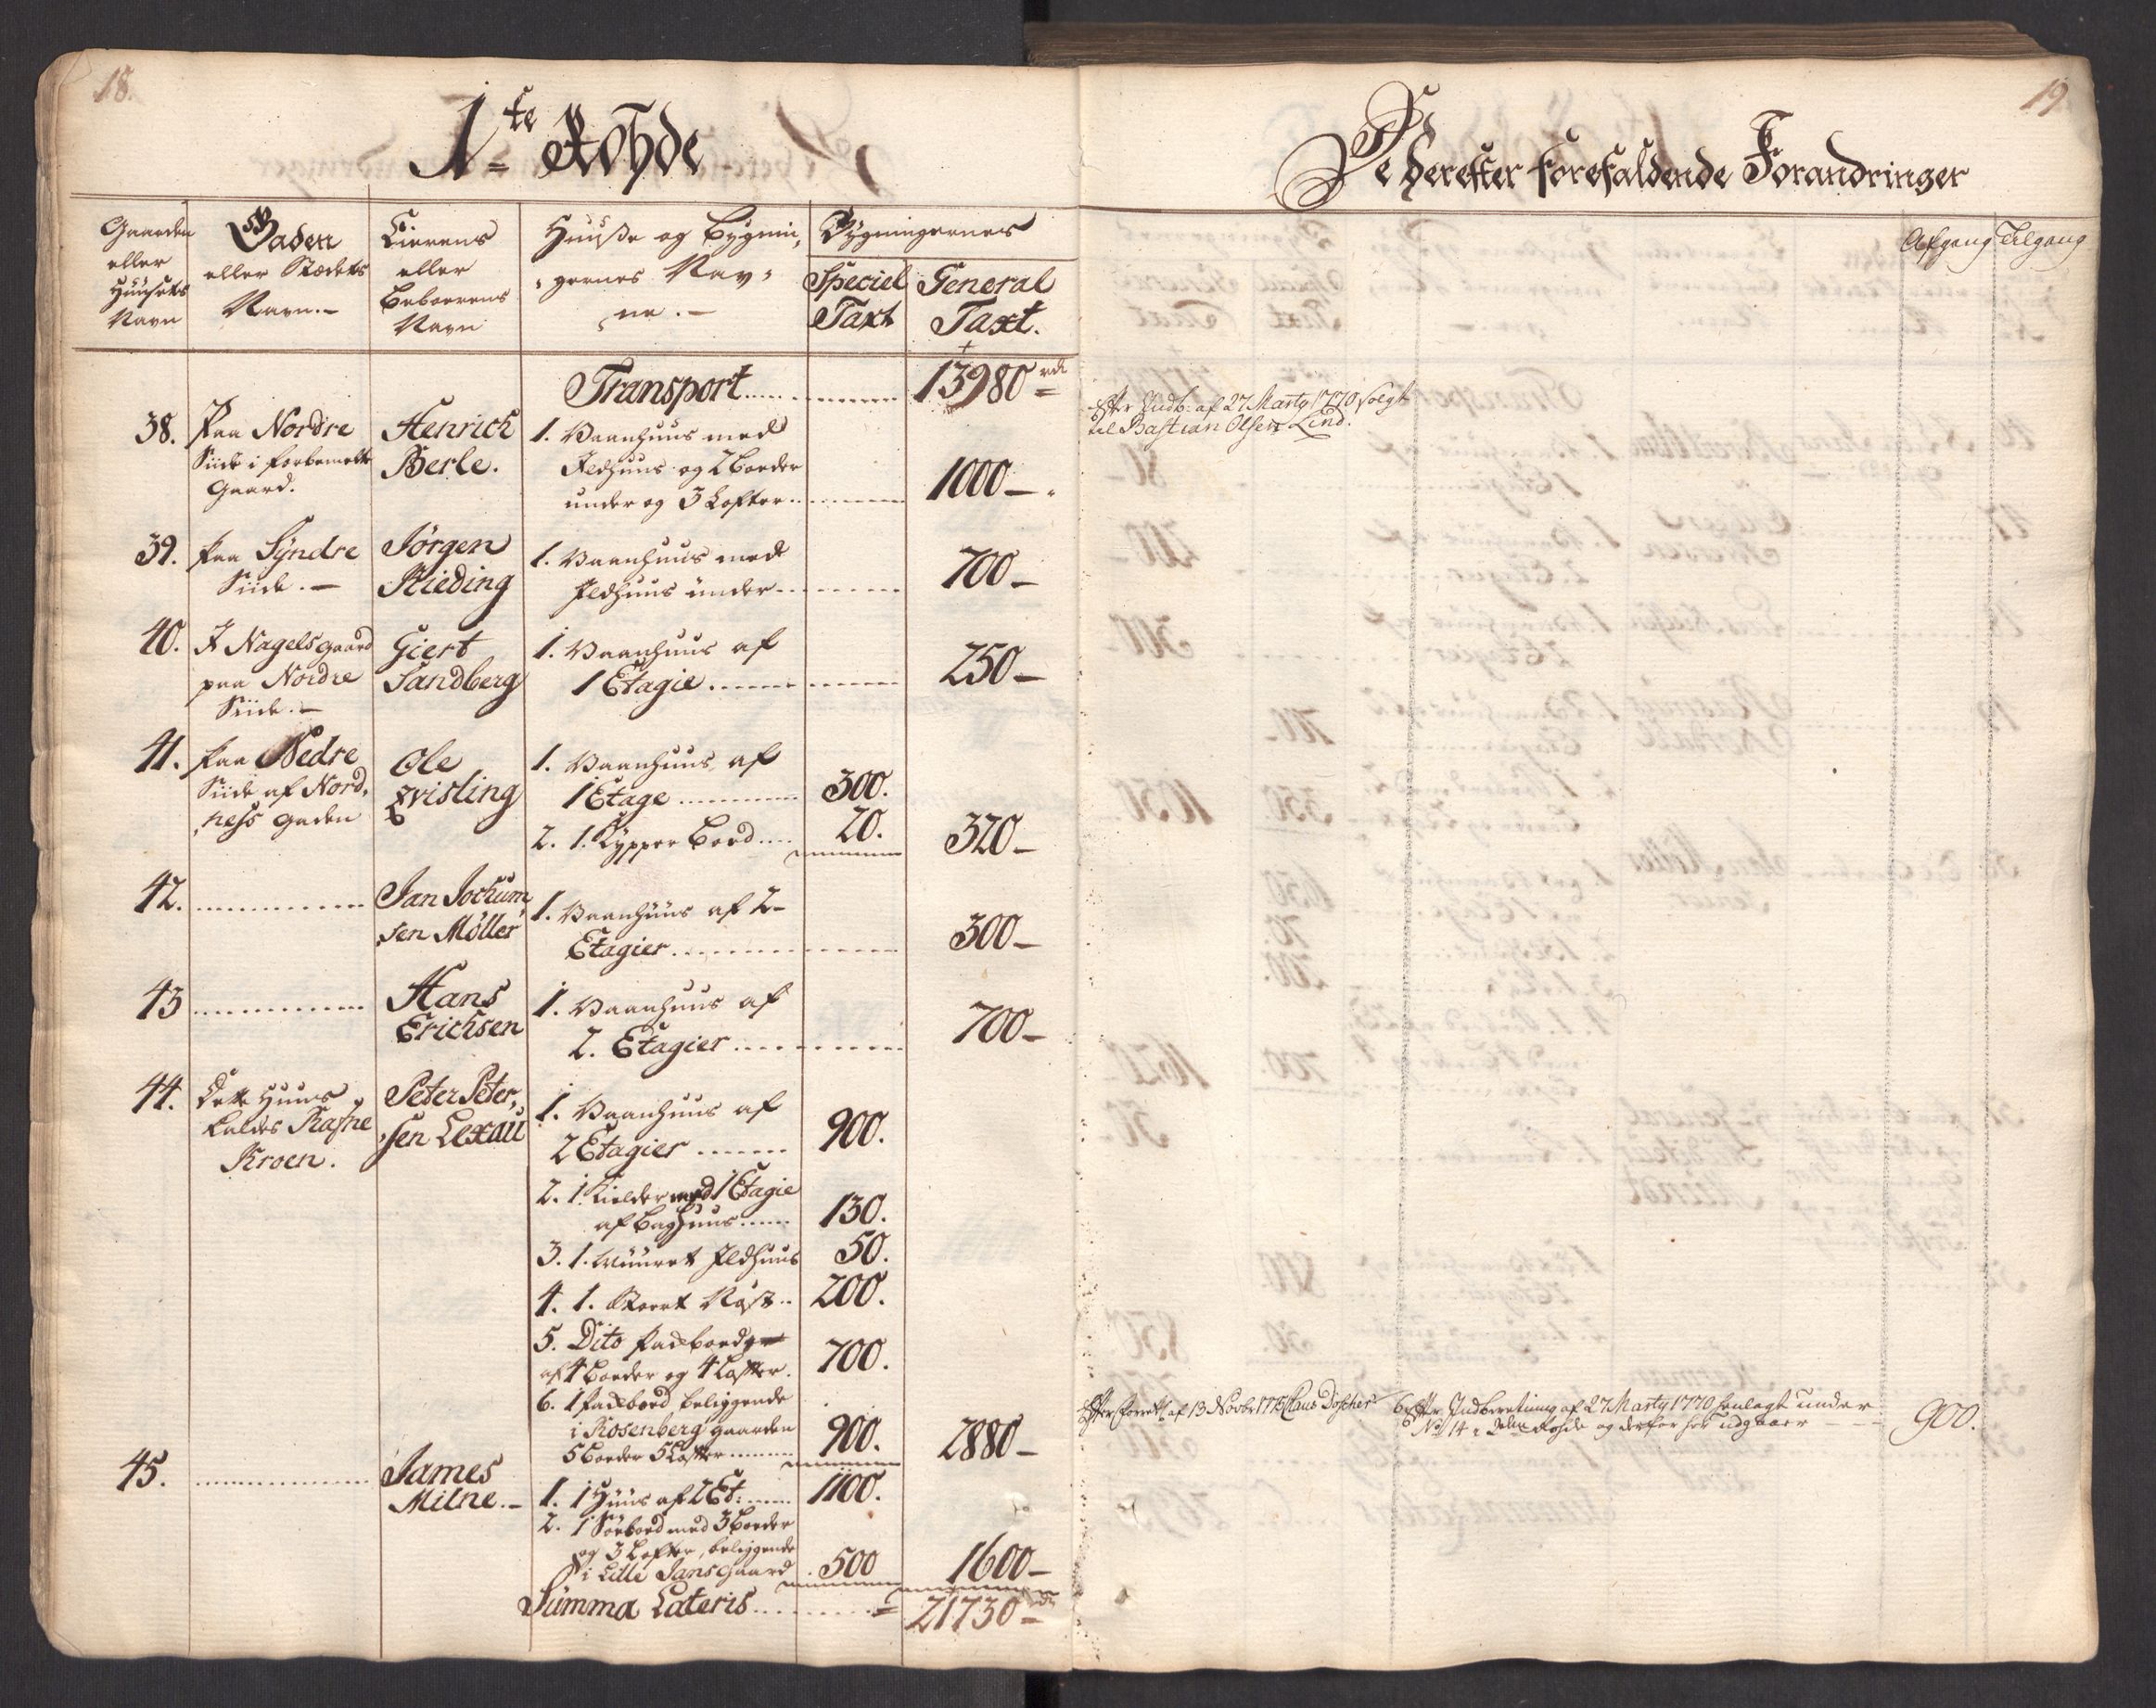 18.
1te Rohde
Gaarden
eller
Huusets
Navn
Gaden
eller Stædets
Navn.
Eierens
eller
Beboerens
Navn
Huuse og Bygnin,
gernes Nav,
ne.
Bygningernes
Speciel
Taxt
General
Taxt.
Transport 13980 rdr
38. Paa Nordre
Siide i forbemelte
Gaard.
Henrich
Berle.
1. Vaanhuus med
Ildhuus og 2 Boeder
under og 3 Lofter
1000
39. Paa Syndre
Siide.
Jørgen
Rieding
1. Vaanhuus med
Ildhuus under
700
40. I Nagelsgaard
paa Nordre
Siide.
Giert
Sandberg
1. Vaanhuus af
1 Etagie
250
41. Paa Nedre
Siide af Nord,
ness Gaden
Ole
Qvisling
1. Vaanhuus af
1 Etage 300.
2. 1. Kypper Boed 20. 320
42.
Jan Jochum,
sen Möller
1. Vaanhuus af 2
Etagier 300
43
Hans
Erichsen
1. Vaanhuus af
2. Etagier 700
44. Dette Huus
kaldes Rasne
Kroen.
Peter Peter,
sen Lexau
1. Vaanhuus af
2 Etagier 900.
2. 1. Kielder med 1 Etagie
af Baghuus 130.
3. 1. Muuret Ildhuus 50.
4. 1. Stoort Nøst 200.
5. Dito Pakboed
af 4 Boeder og 4 Lofter. 700.
6. 1 Pakboed beliggende
i Rosenberg gaarden
5 Boeder 5 Lofter 900. 2880
45.
James
Milne.
1. 1 Huus af 2 Et: 1100.
2. 1 Søeboed med 3 Boeder
og 3 Lofter, beliggende
i Lille Jansgaard 500 1600
Summa Lateris 21730 rdr
19
De herefter forefaldende Forandringer
Afgang Tilgang
Efter Indb: af 27 Marty 1770 solgt
til Bastian Olsen Lind.
Efter Forrettn: af 13 Novbr 1775 Claus Döscher
6 Efter Indberetning af 27 Marty 1770 henlagt under
No 14 i Rohde og derfor her udgaaer 900.